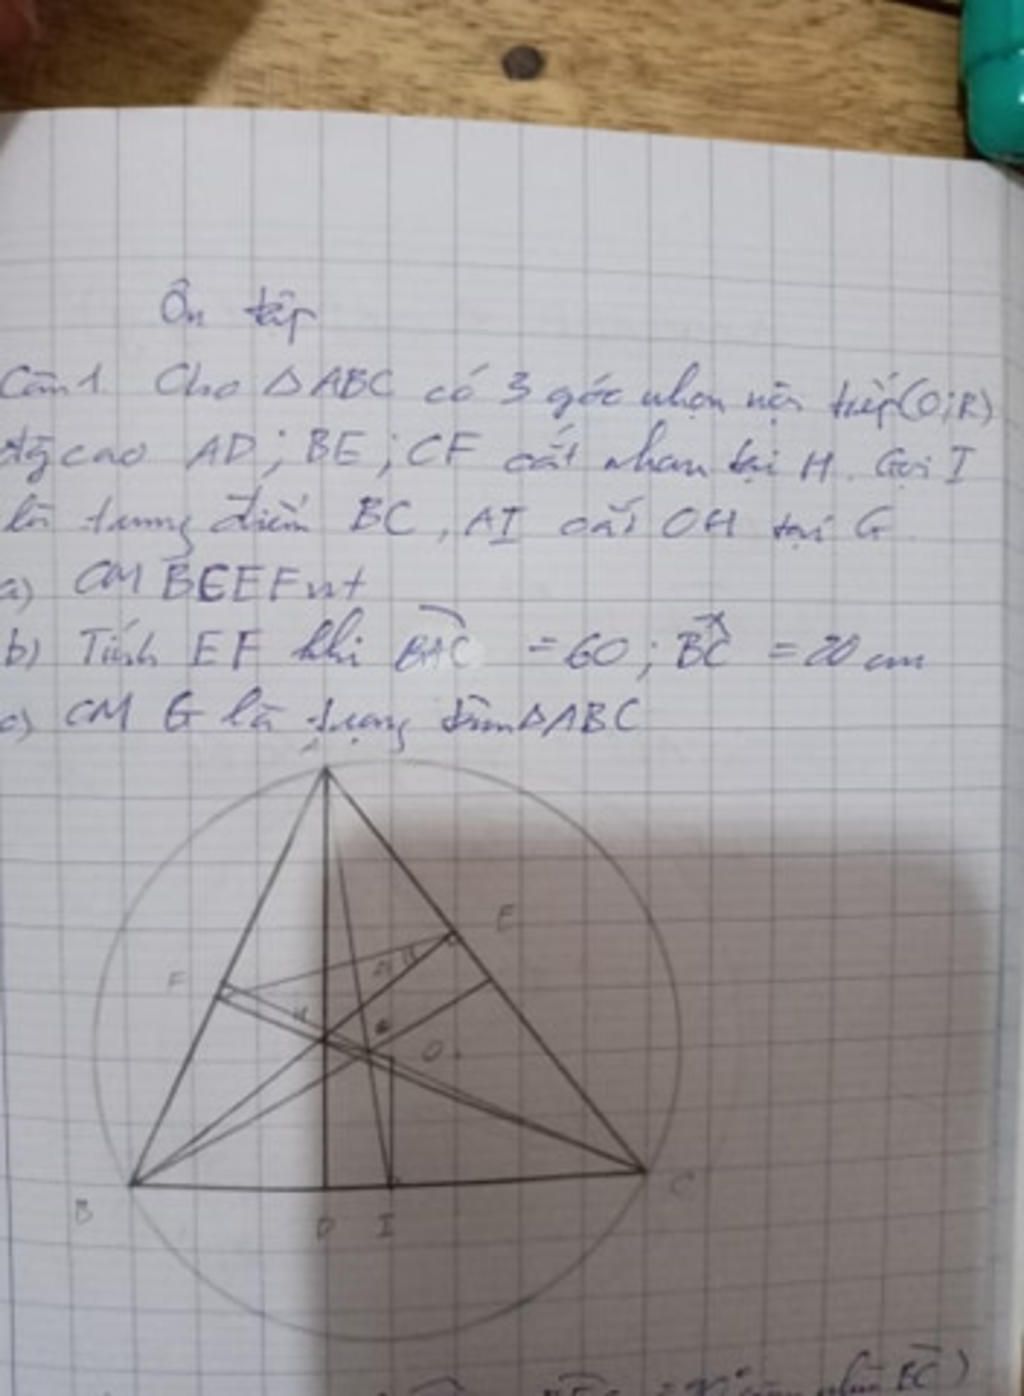 Ôn tập
Câu 1. Cho △ABC có 3 góc nhọn nội tiếp (O;R)
đg cao AD; BE; CF cắt nhau tại H. Gọi I
là trung điểm BC, AI cắt OH tại G.
a) CM BCEF nt
b) Tính EF khi BAC = 60; BC = 20 cm
c) CM G là trọng tâm △ABC
A
E
F
H
G
O
B
D
I
C